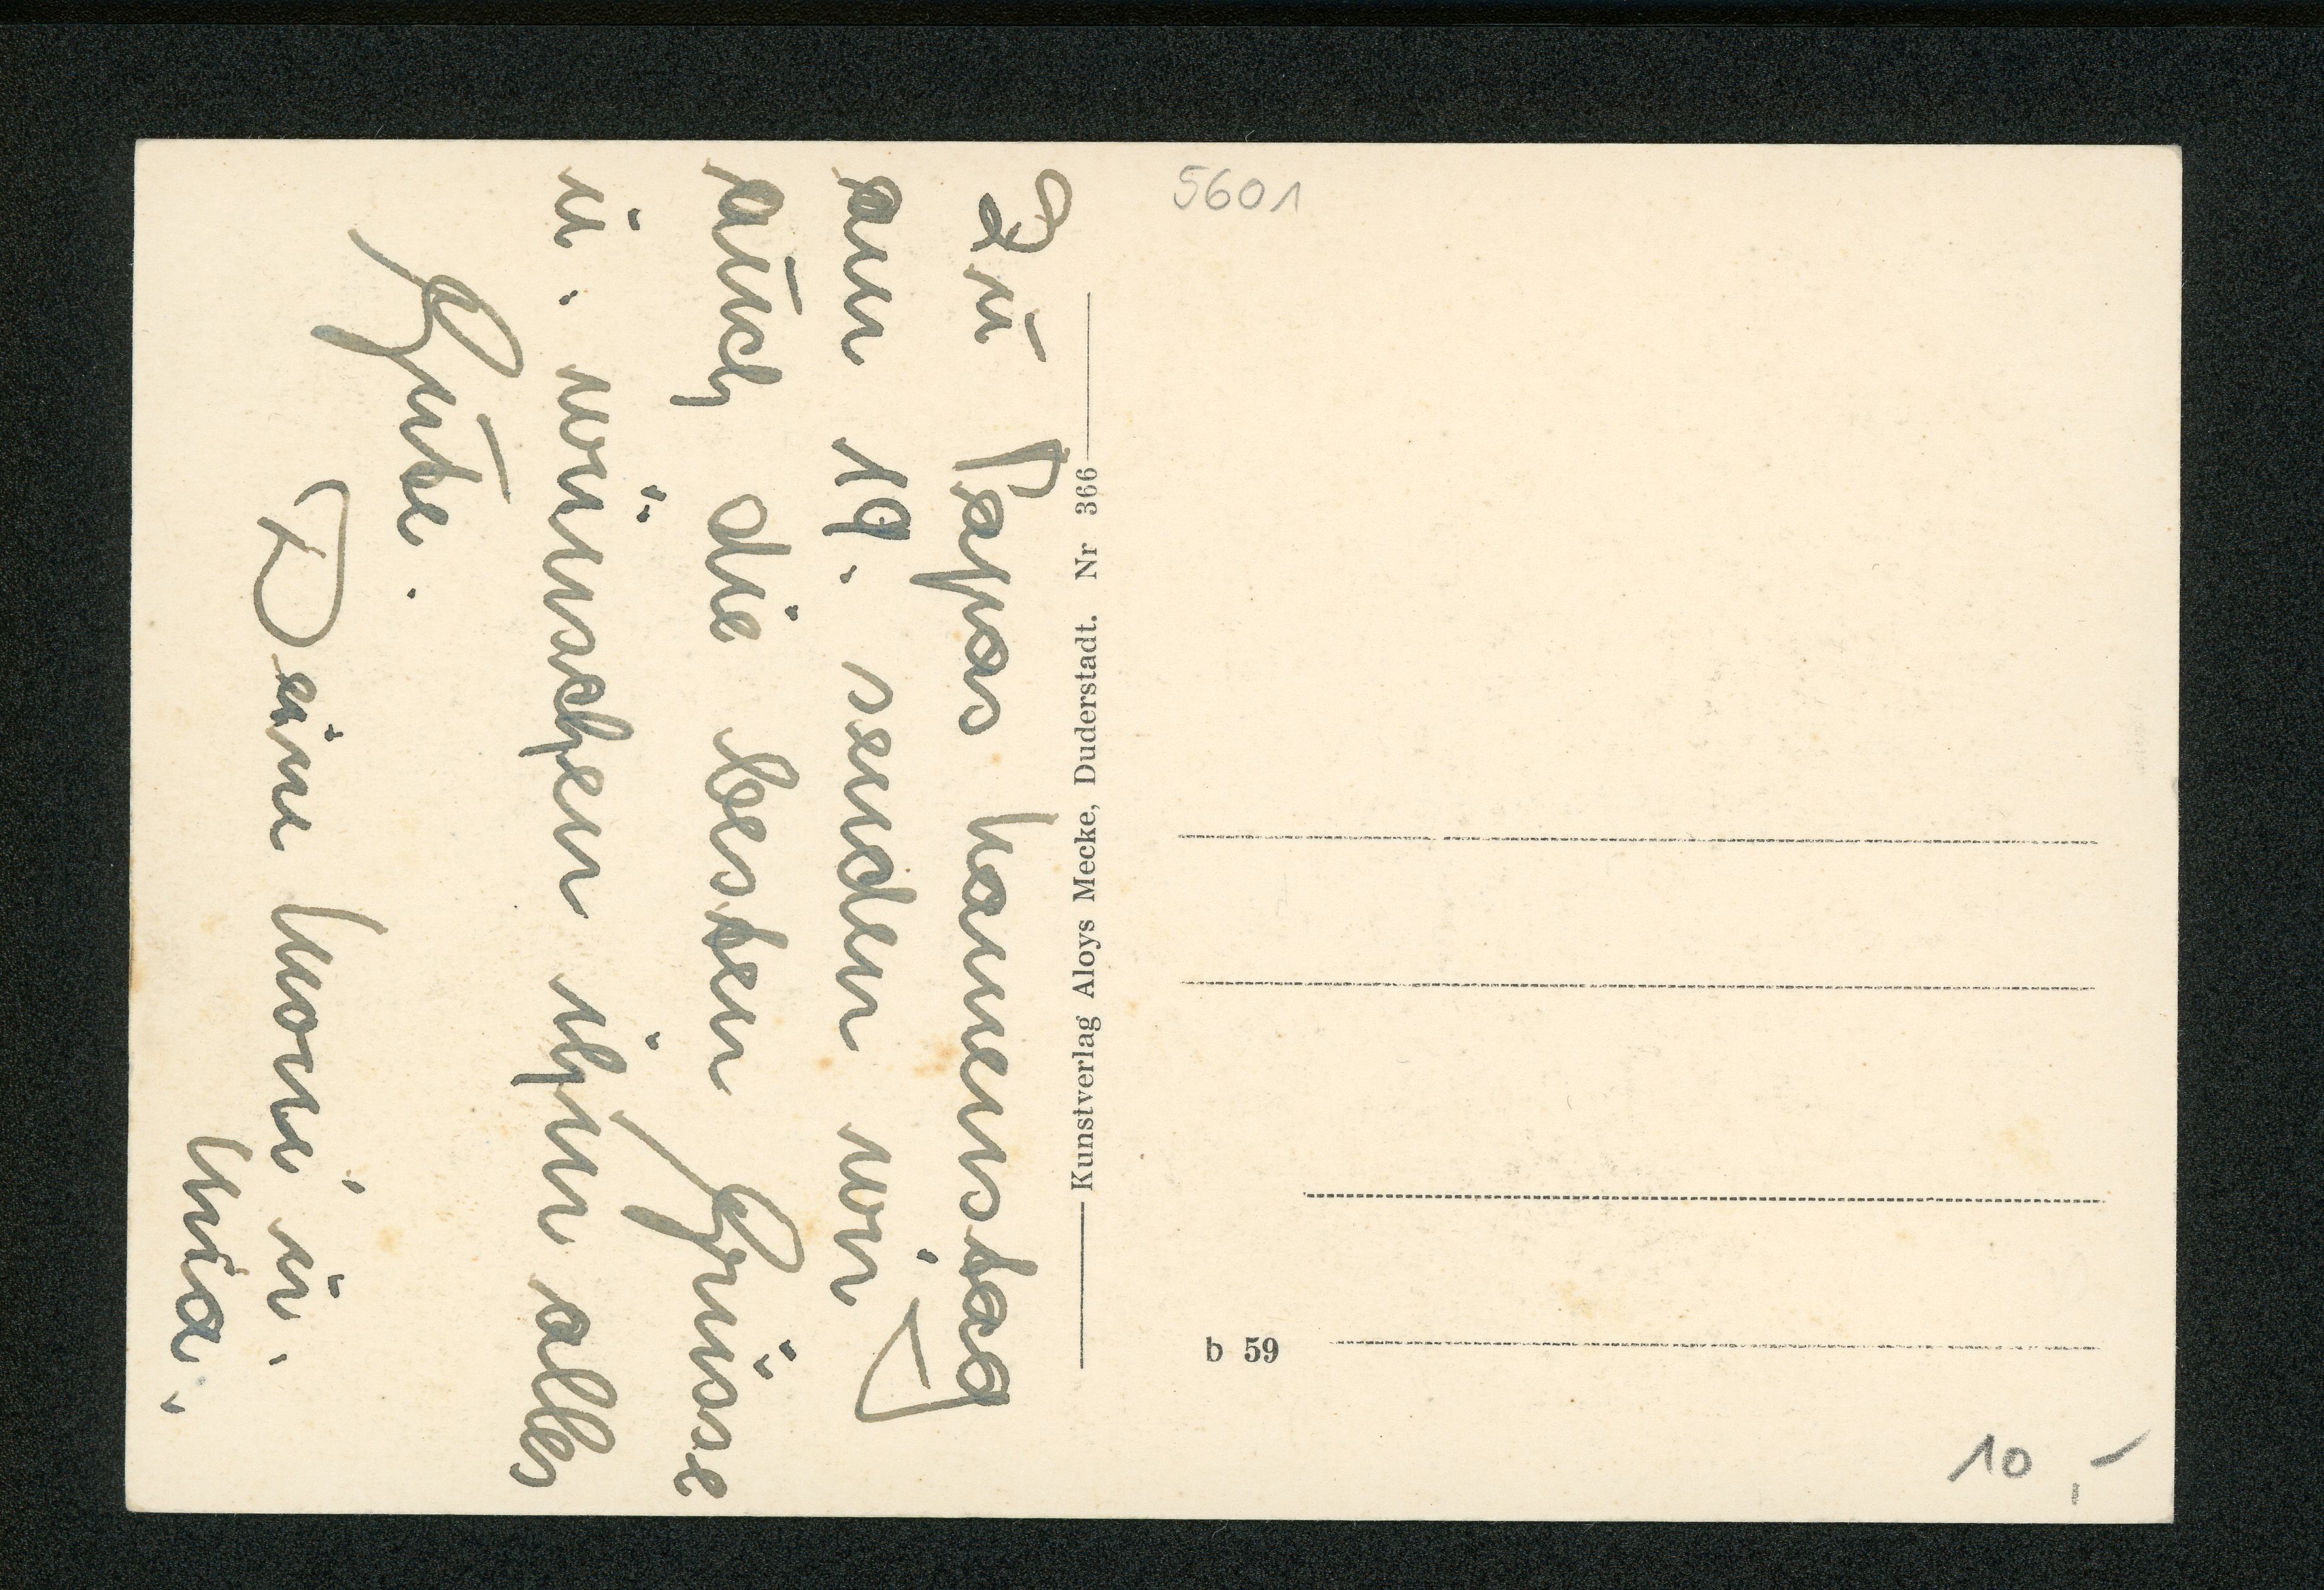 Zu Papas Namenstag
am 19. senden wir
auch die besten Grüsse
u. wünschen ihm alles
Gute.
Deine Moni u.
Mia.
Kunstverlag Aloys Mecke, Duderstadt. Nr 366
5601
b 59
10,-